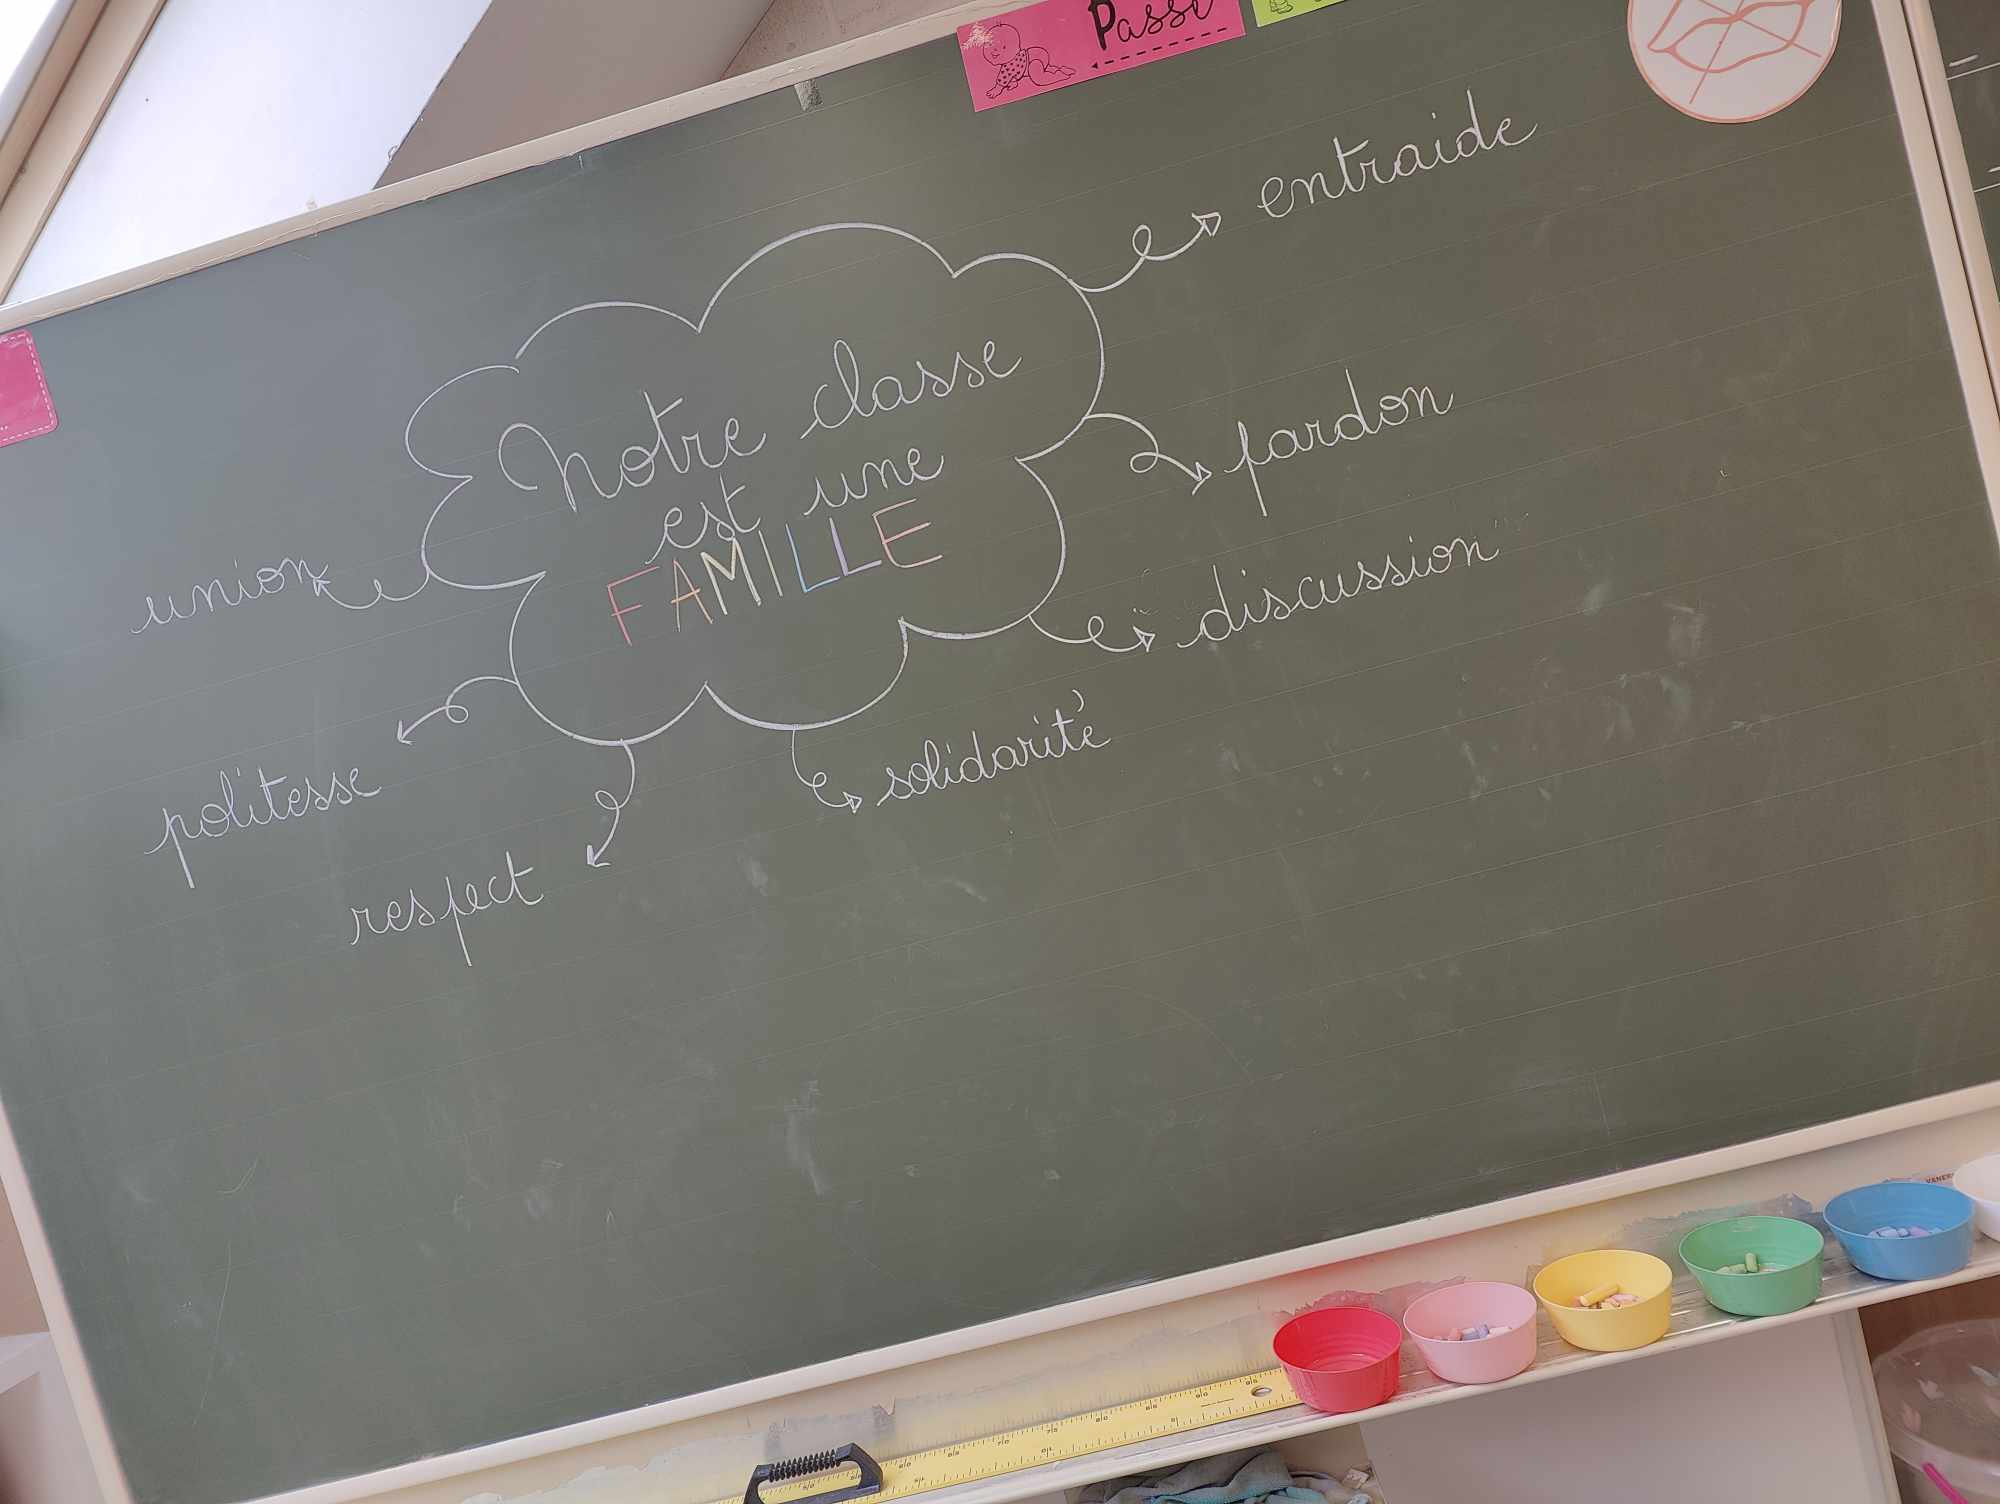 Passé
entraide
Notre classe
est une
FAMILLE
pardon
union
discussion
politesse
solidarité
respect